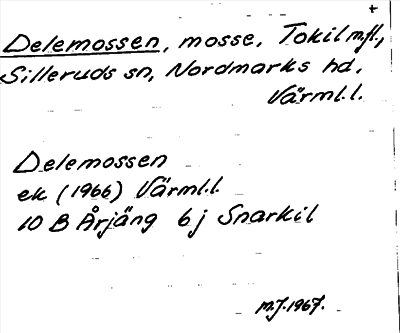 +
Delemossen, mosse, Tokil m.fl.,
Silleruds sn, Nordmarks hd,
Värml.l.
Delemossen
ek (1966) Värml.l.
10 B Årjäng 6 j Snarkil
M.J. 1967.